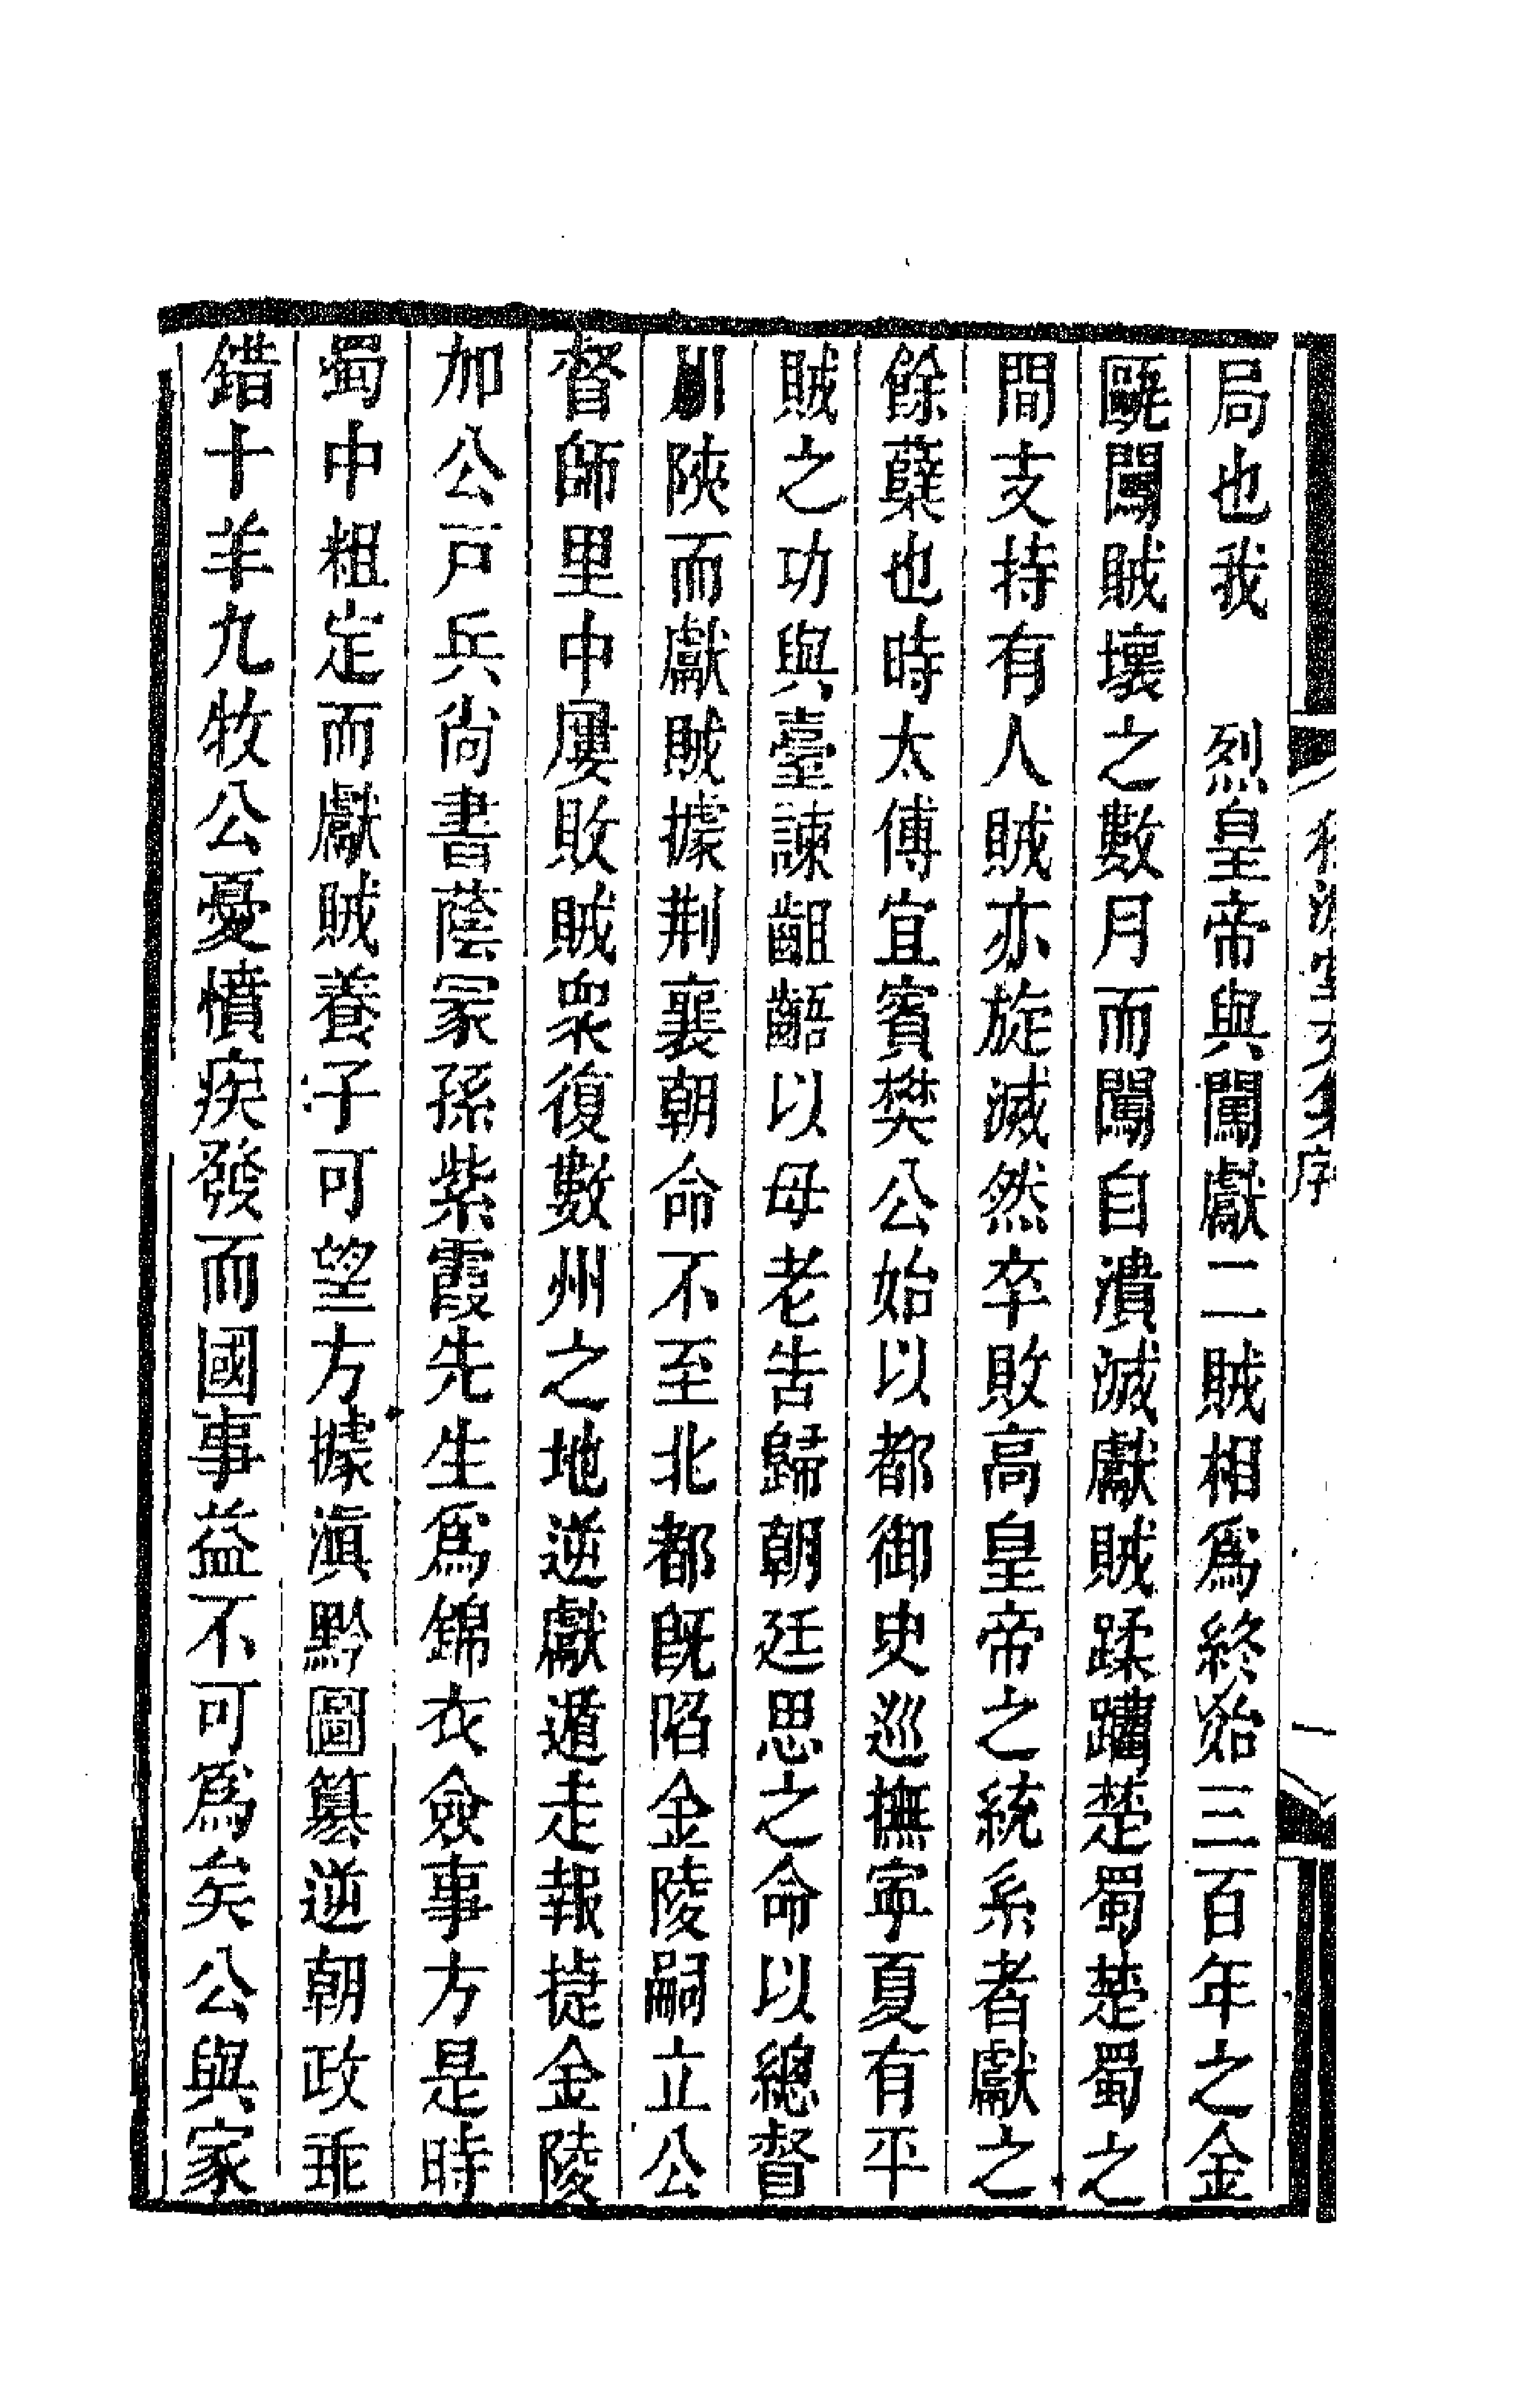 局也我　烈皇帝與闖獻二賊相爲終始三百年之金
甌闖賊壞之數月而闖自潰滅獻賊蹂躪楚蜀楚蜀之
間支持有人賊亦旋滅然卒敗高皇帝之統系者獻之
餘孽也時太傅宜賓樊公始以都御史巡撫寧夏有平
賊之功與臺諫齟齬以母老告歸朝廷思之命以總督
川陝而獻賊據荆襄朝命不至北都既陷金陵嗣立公
督師里中屢敗賊衆復數州之地逆獻遁走報捷金陵
加公戸兵尚書蔭冡孫紫霞先生爲錦衣僉事方是時
蜀中粗定而獻賊養子可望方據滇黔圖簒逆朝政乖
錯十羊九牧公憂憤疾發而國事益不可爲矣公與家
序
一